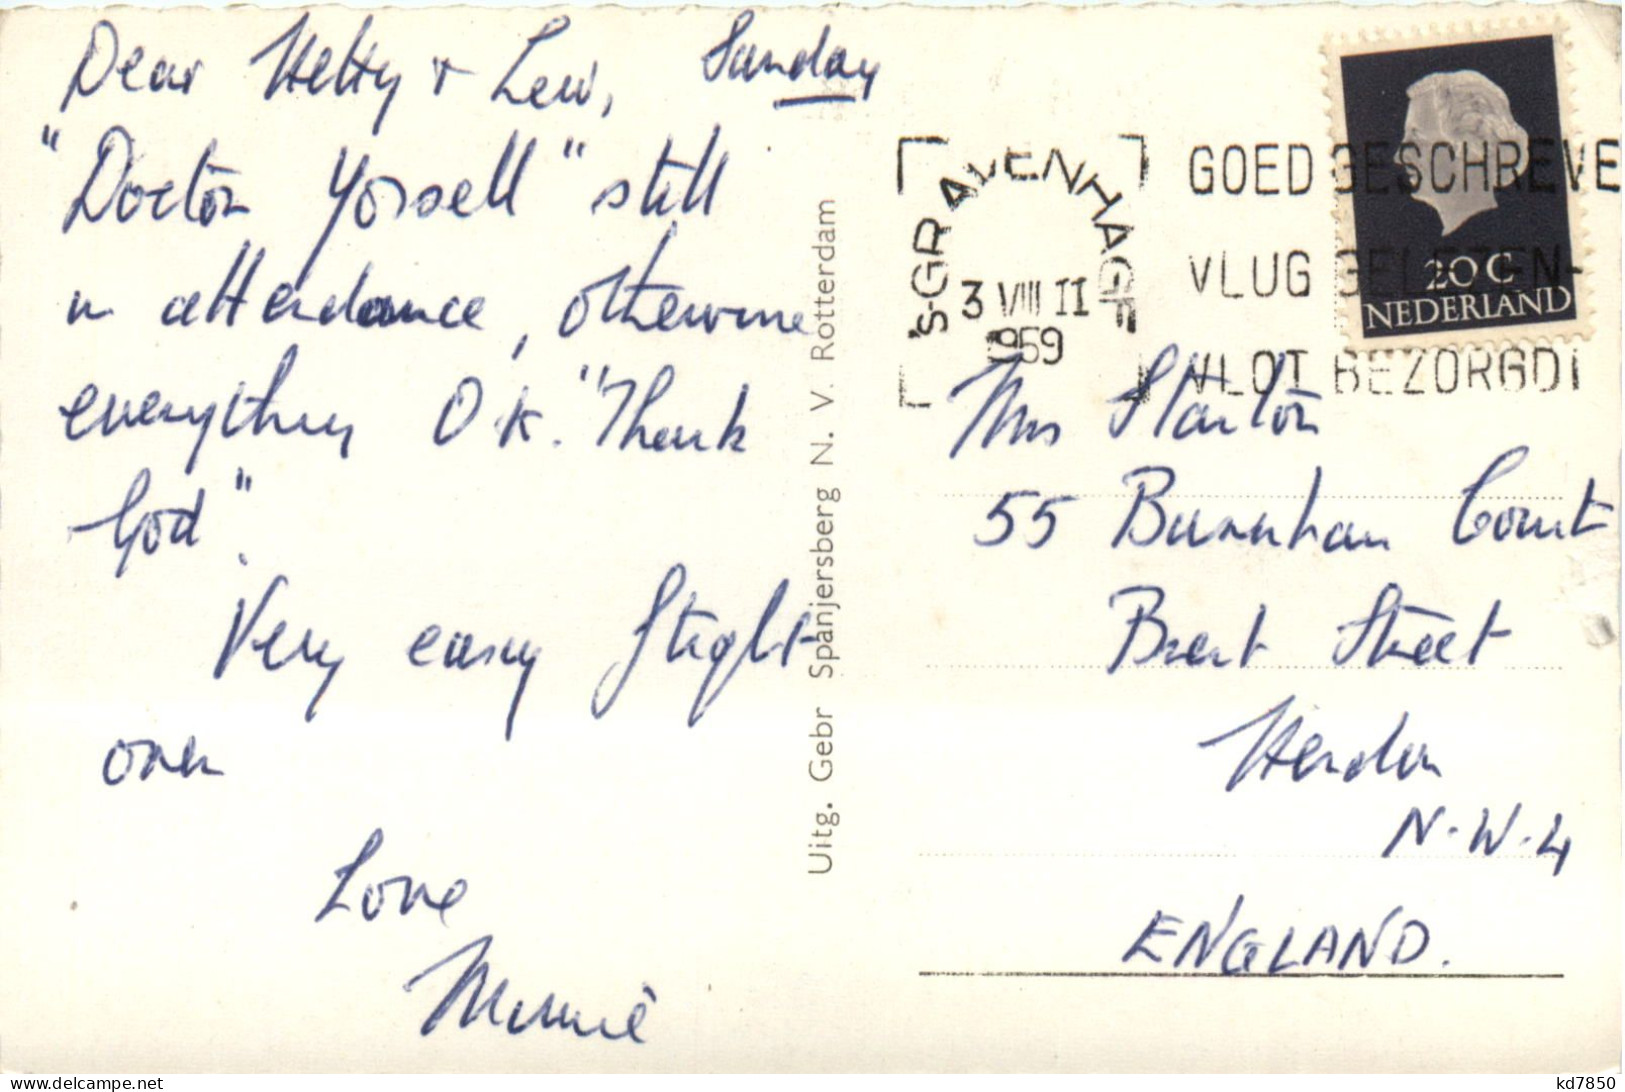 Dear Hetty + Lew, Sunday
"Doctor Yorsell" still
in attendance, otherwise
everything O.K. "Thank
God".
Very easy flight
over
Love
Minnie
Uitg. Gebr Spanjersberg N. V. Rotterdam
'S-GRAVENHAGE
3 VIII 11
1969
GOED GESCHREVE
VLUG GELEZEN-
VLOT BEZORGD!
20 C
NEDERLAND
Mrs Stanton
55 Burnham Court
Brent Street
Hendon
N.W.4
ENGLAND.
delcampe.net
kd7850